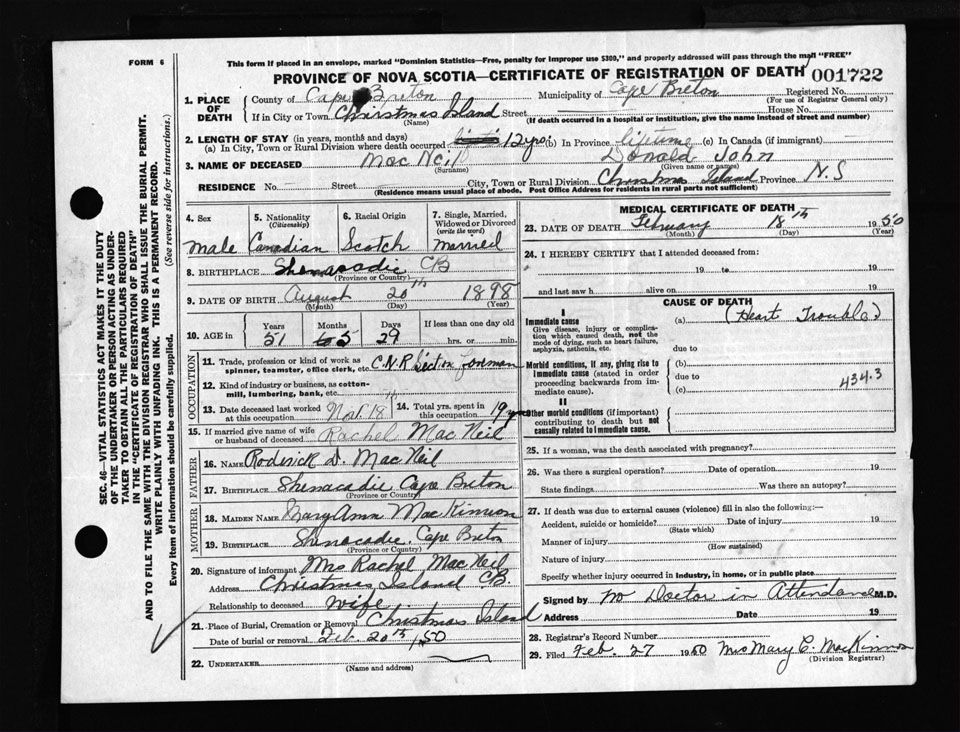 FORM 6
This form if placed in an envelope, marked "Dominion Statistics—Free, penalty for improper use $300," and properly addressed will pass through the mail "FREE"
PROVINCE OF NOVA SCOTIA—CERTIFICATE OF REGISTRATION OF DEATH 001722
1. PLACE OF DEATH
County of Cape Breton Municipality of Cape Breton Registered No.
(For use of Registrar General only)
If in City or Town Christmas Island Street House No.
(Name) (If death occurred in a hospital or institution, give the name instead of street and number)
2. LENGTH OF STAY (in years, months and days)
(a) In City, Town or Rural Division where death occurred 12 yrs (b) In Province lifetime (c) In Canada (if immigrant)
3. NAME OF DECEASED Mac Neil Donald John
(Surname) (Given name or names)
RESIDENCE No. Street City, Town or Rural Division Christmas Island Province N.S
(Residence means usual place of abode. Post Office Address for residents in rural parts not sufficient)
4. Sex
Male
5. Nationality
(Citizenship)
Canadian
6. Racial Origin
Scotch
7. Single, Married, Widowed or Divorced
(write the word)
Married
8. BIRTHPLACE Shenacadie CB
(Province or Country)
9. DATE OF BIRTH August 20th 1898
(Month) (Day) (Year)
10. AGE in Years Months Days If less than one day
51 5 29 hrs. or min.
OCCUPATION
11. Trade, profession or kind of work as spinner, teamster, office clerk, etc. C.N.R Section forman
12. Kind of industry or business, as cotton-mill, lumbering, bank, etc.
13. Date deceased last worked at this occupation
14. Total yrs. spent in this occupation 19 yrs
15. If married give name of wife or husband of deceased Rachel Mac Neil
FATHER
16. NAME Roderick D. MacNeil
17. BIRTHPLACE Shenacadie Cape Breton
(Province or Country)
MOTHER
18. MAIDEN NAME Mary Ann MacKinnon
19. BIRTHPLACE Shinacadie. Cape Breton
(Province or Country)
20. Signature of informant Mrs Rachel MacNeil
Address Christmas Island CB.
Relationship to deceased Wife
21. Place of Burial, Cremation or Removal Christmas Island
Date of burial or removal Feb. 20th 1950
22. UNDERTAKER
(Name and address)
MEDICAL CERTIFICATE OF DEATH
23. DATE OF DEATH February 18th 1950
(Month) (Day) (Year)
24. I HEREBY CERTIFY that I attended deceased from:
19 to 19
and last saw h alive on 19
CAUSE OF DEATH
I
Immediate cause (a) (Heart Trouble)
Give disease, injury or complication which caused death, not the mode of dying, such as heart failure, asphyxia, asthenia, etc.
due to
Morbid conditions, if any, giving rise to immediate cause (stated in order proceeding backwards from immediate cause).
(b)
due to
(c)
434.3
II
Other morbid conditions (if important) contributing to death but not causally related to immediate cause.
25. If a woman, was the death associated with pregnancy?
26. Was there a surgical operation? Date of operation 19
State findings Was there an autopsy?
27. If death was due to external causes (violence) fill in also the following:—
Accident, suicide or homicide? Date of injury 19
(State which)
Manner of injury
(How sustained)
Nature of injury
Specify whether injury occurred in industry, in home, or in public place
Signed by no Doctor in Attendance M.D.
Address Date 19
28. Registrar's Record Number
29. Filed Feb. 27 1950 Mrs Mary C. MacKinnon
(Division Registrar)
SEC. 46—VITAL STATISTICS ACT MAKES IT THE DUTY
OF THE UNDERTAKER OR PERSON ACTING AS UNDER-
TAKER TO OBTAIN ALL THE PARTICULARS REQUIRED
IN THE "CERTIFICATE OF REGISTRATION OF DEATH"
AND TO FILE THE SAME WITH THE DIVISION REGISTRAR WHO SHALL ISSUE THE BURIAL PERMIT.
WRITE PLAINLY WITH UNFADING INK. THIS IS A PERMANENT RECORD.
Every item of information should be carefully supplied. (See reverse side for instructions.)